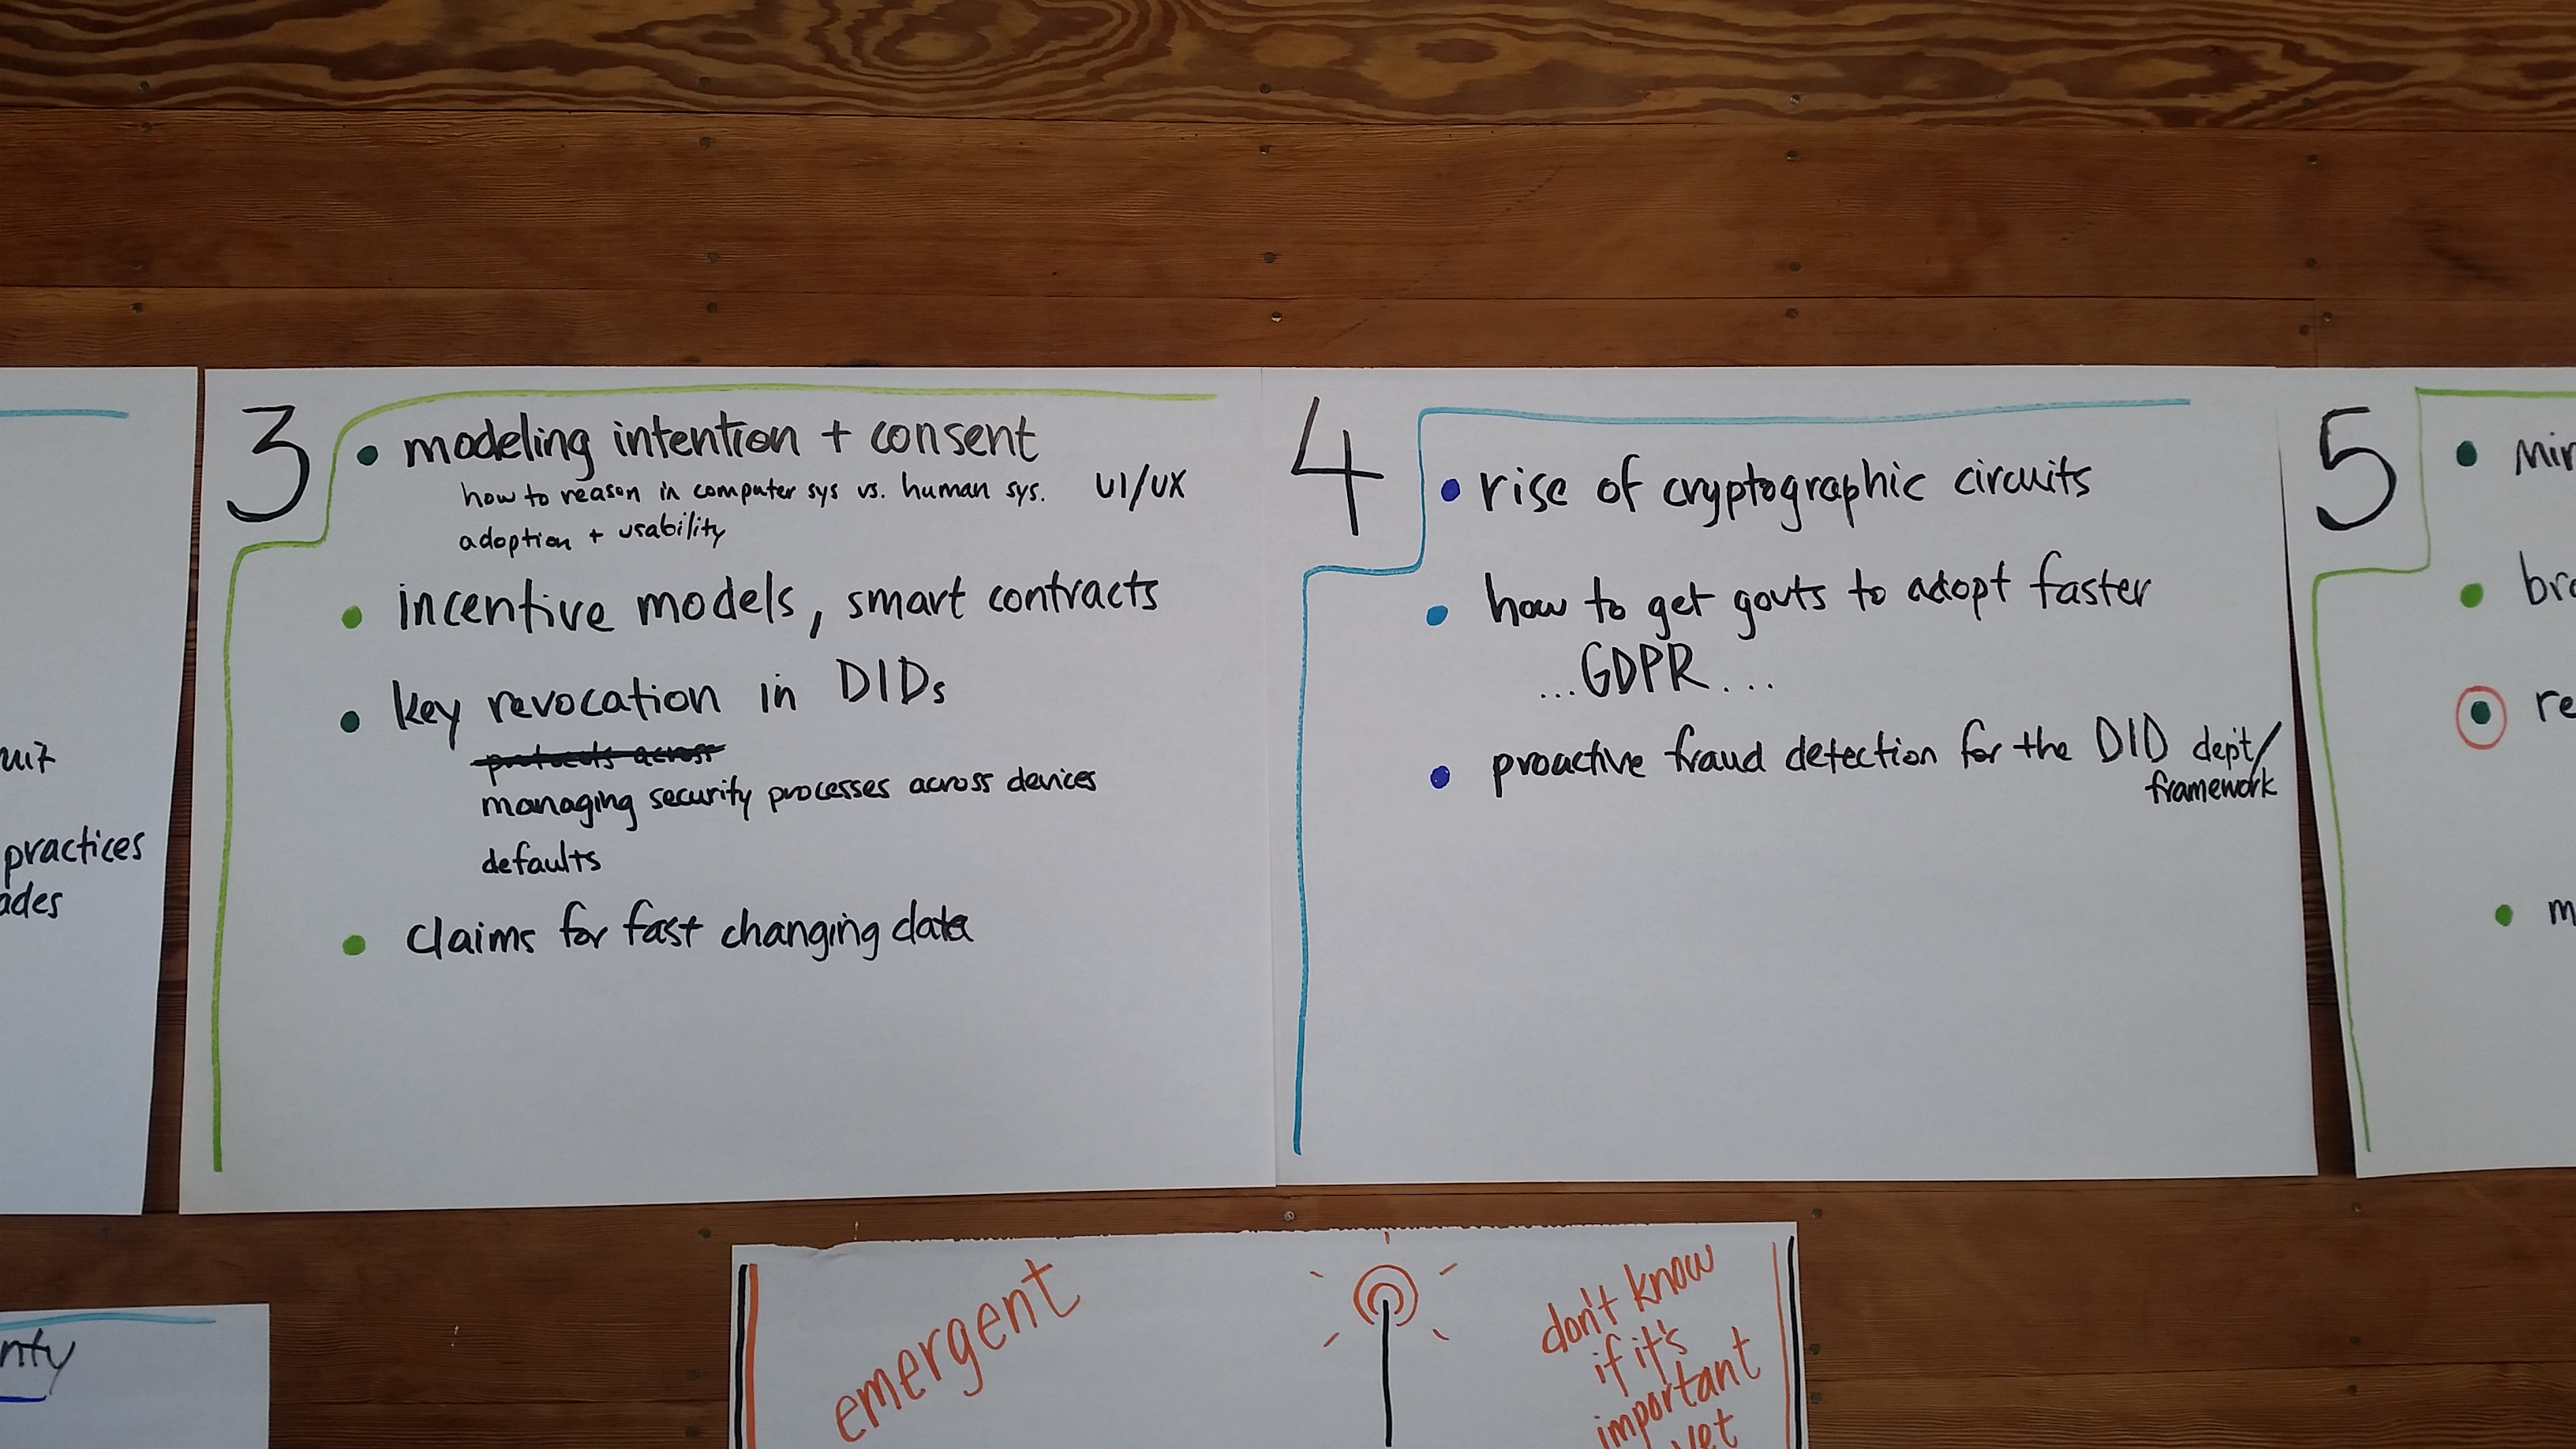 practices
ades
3
modeling intention + consent
how to reason in computer sys vs. human sys. UI/UX
adoption + usability
incentive models, smart contracts
key revocation in DIDs
protocols across
managing security processes across devices
defaults
claims for fast changing data
4
rise of cryptographic circuits
how to get govts to adopt faster
...GDPR...
proactive fraud detection for the DID dept/
framework
5
bro
re
m
nty
emergent
don't know
if it's
important
yet